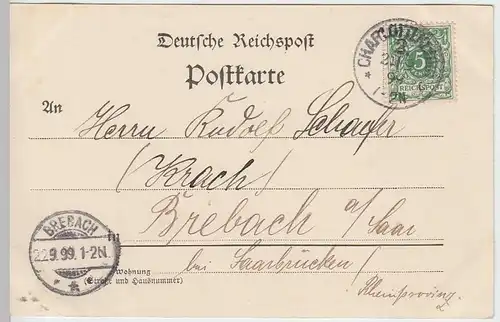 Deutsche Reichspost
Postkarte
CHARLOTTENBURG
2
5
REICHSPOST
1-2N
An
Herrn Rudolf Schaefer
(Krach)
Brebach a/Saar
BREBACH
22.9.99.1-2N.
in
bei Saarbrücken/
Wohnung
(Straße und Hausnummer)
Rheinprovinz